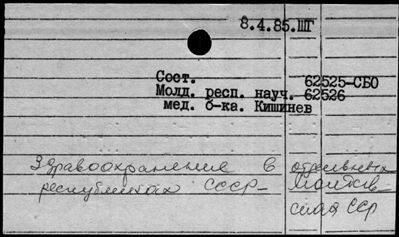 8.4.85.ШГ
Сост. 62525-СБО
Молд. респ. науч. 62526
мед. б-ка. Кишинев
Здравоохранение в отдельных
республиках СССР – Молдав
ская ССР